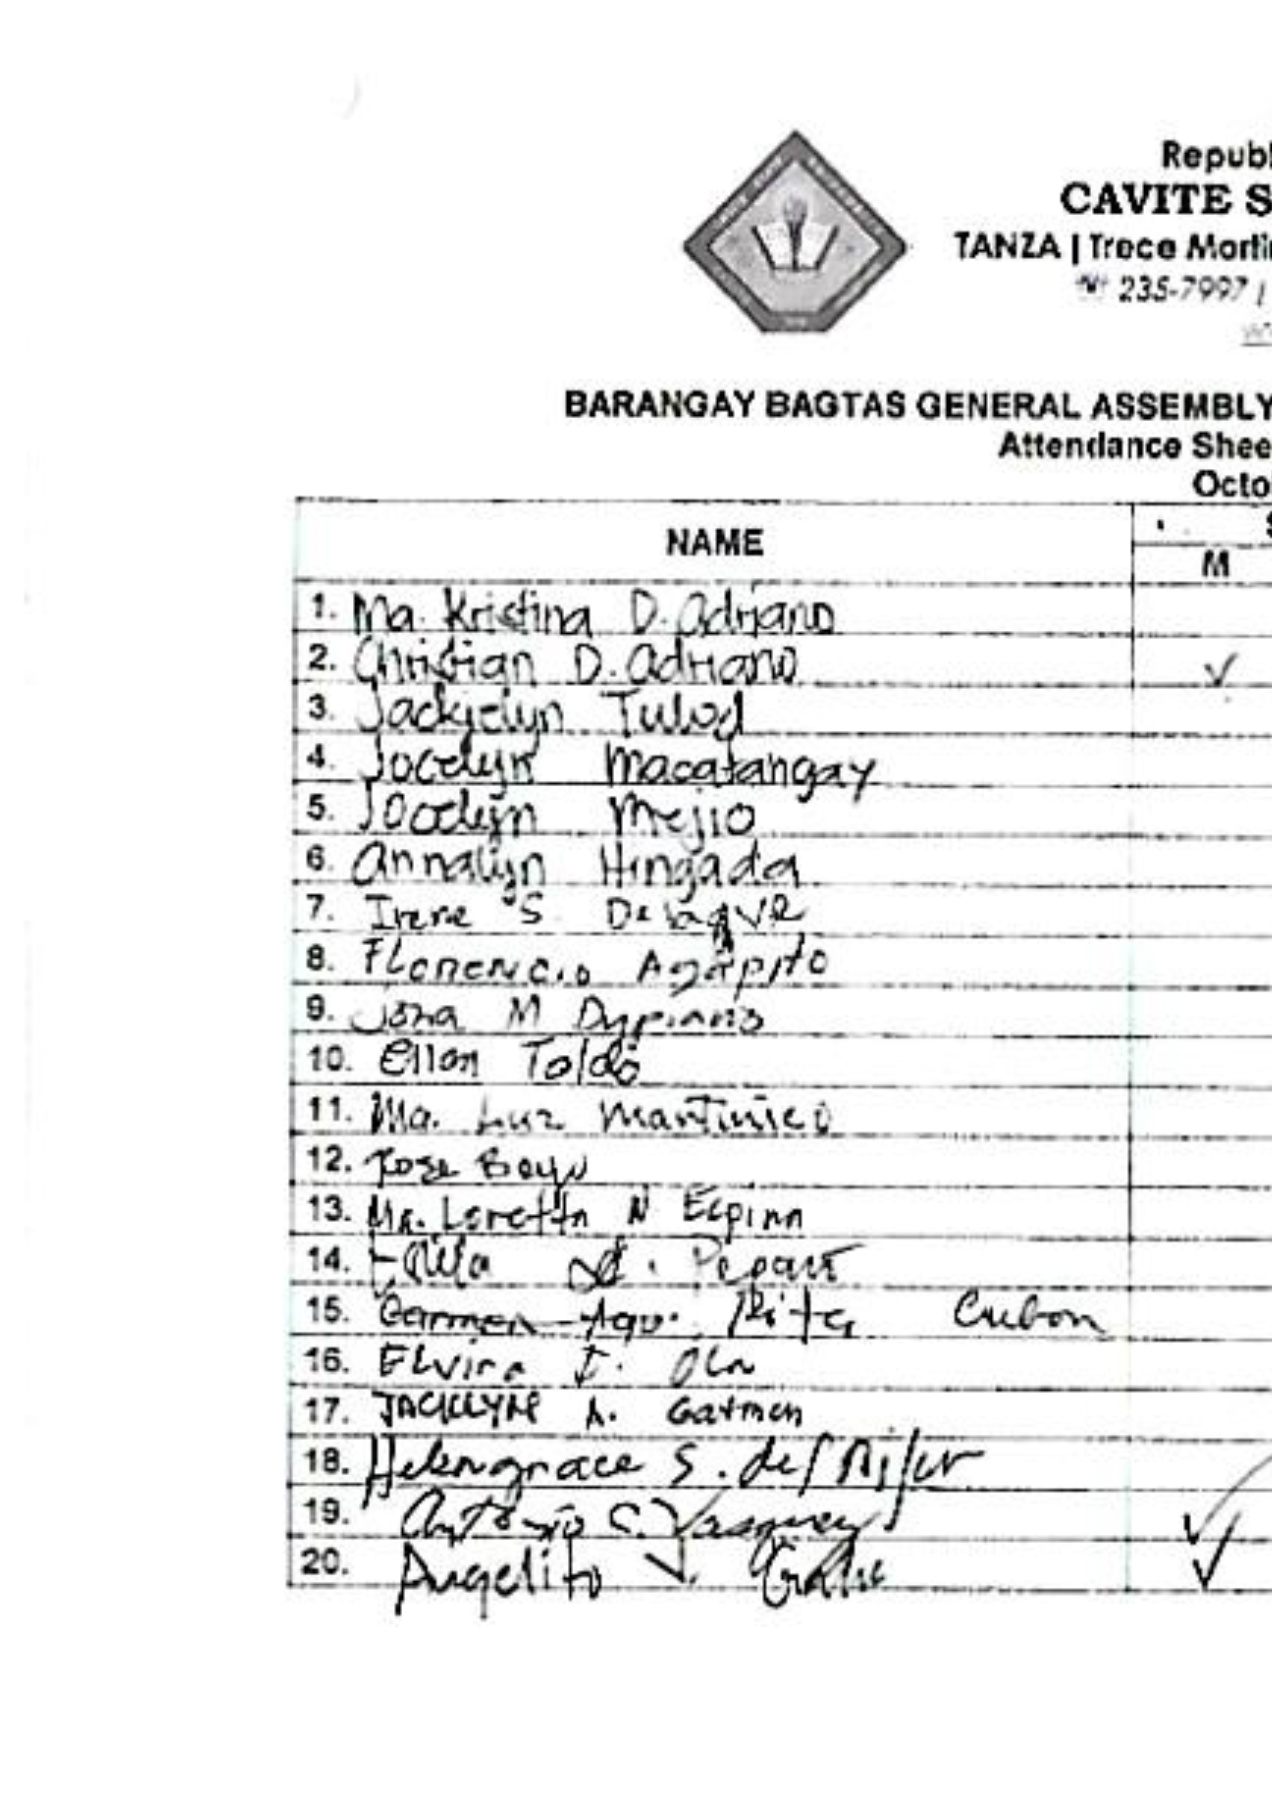 Republ
CAVITE S
TANZA | Trece Martir
☎ 235-7997 |
BARANGAY BAGTAS GENERAL ASSEMBLY
Attendance Shee
Octo
NAME
M
1. Ma. Kristina D. Adriano
2. Christian D. Adriano ✓
3. Jackjelyn Tulod
4. Jocelyn Macatangay
5. Jocelyn Mejio
6. Annalyn Hingada
7. Irene S.
8. Florencio Agapito
9. Jona M
10. Ellen Toldo
11. Ma. Luz Martinico
12. Rose
13. Ma. Loretta N Espina
14.
15. Carmen Rita Cubon
16. Elvira I. Ola
17. JACKLYNE A. Gatmen
18. Helengrace S. del Pilar
19. Antonio C. Vasquez ✓
20. Angelito V. ✓